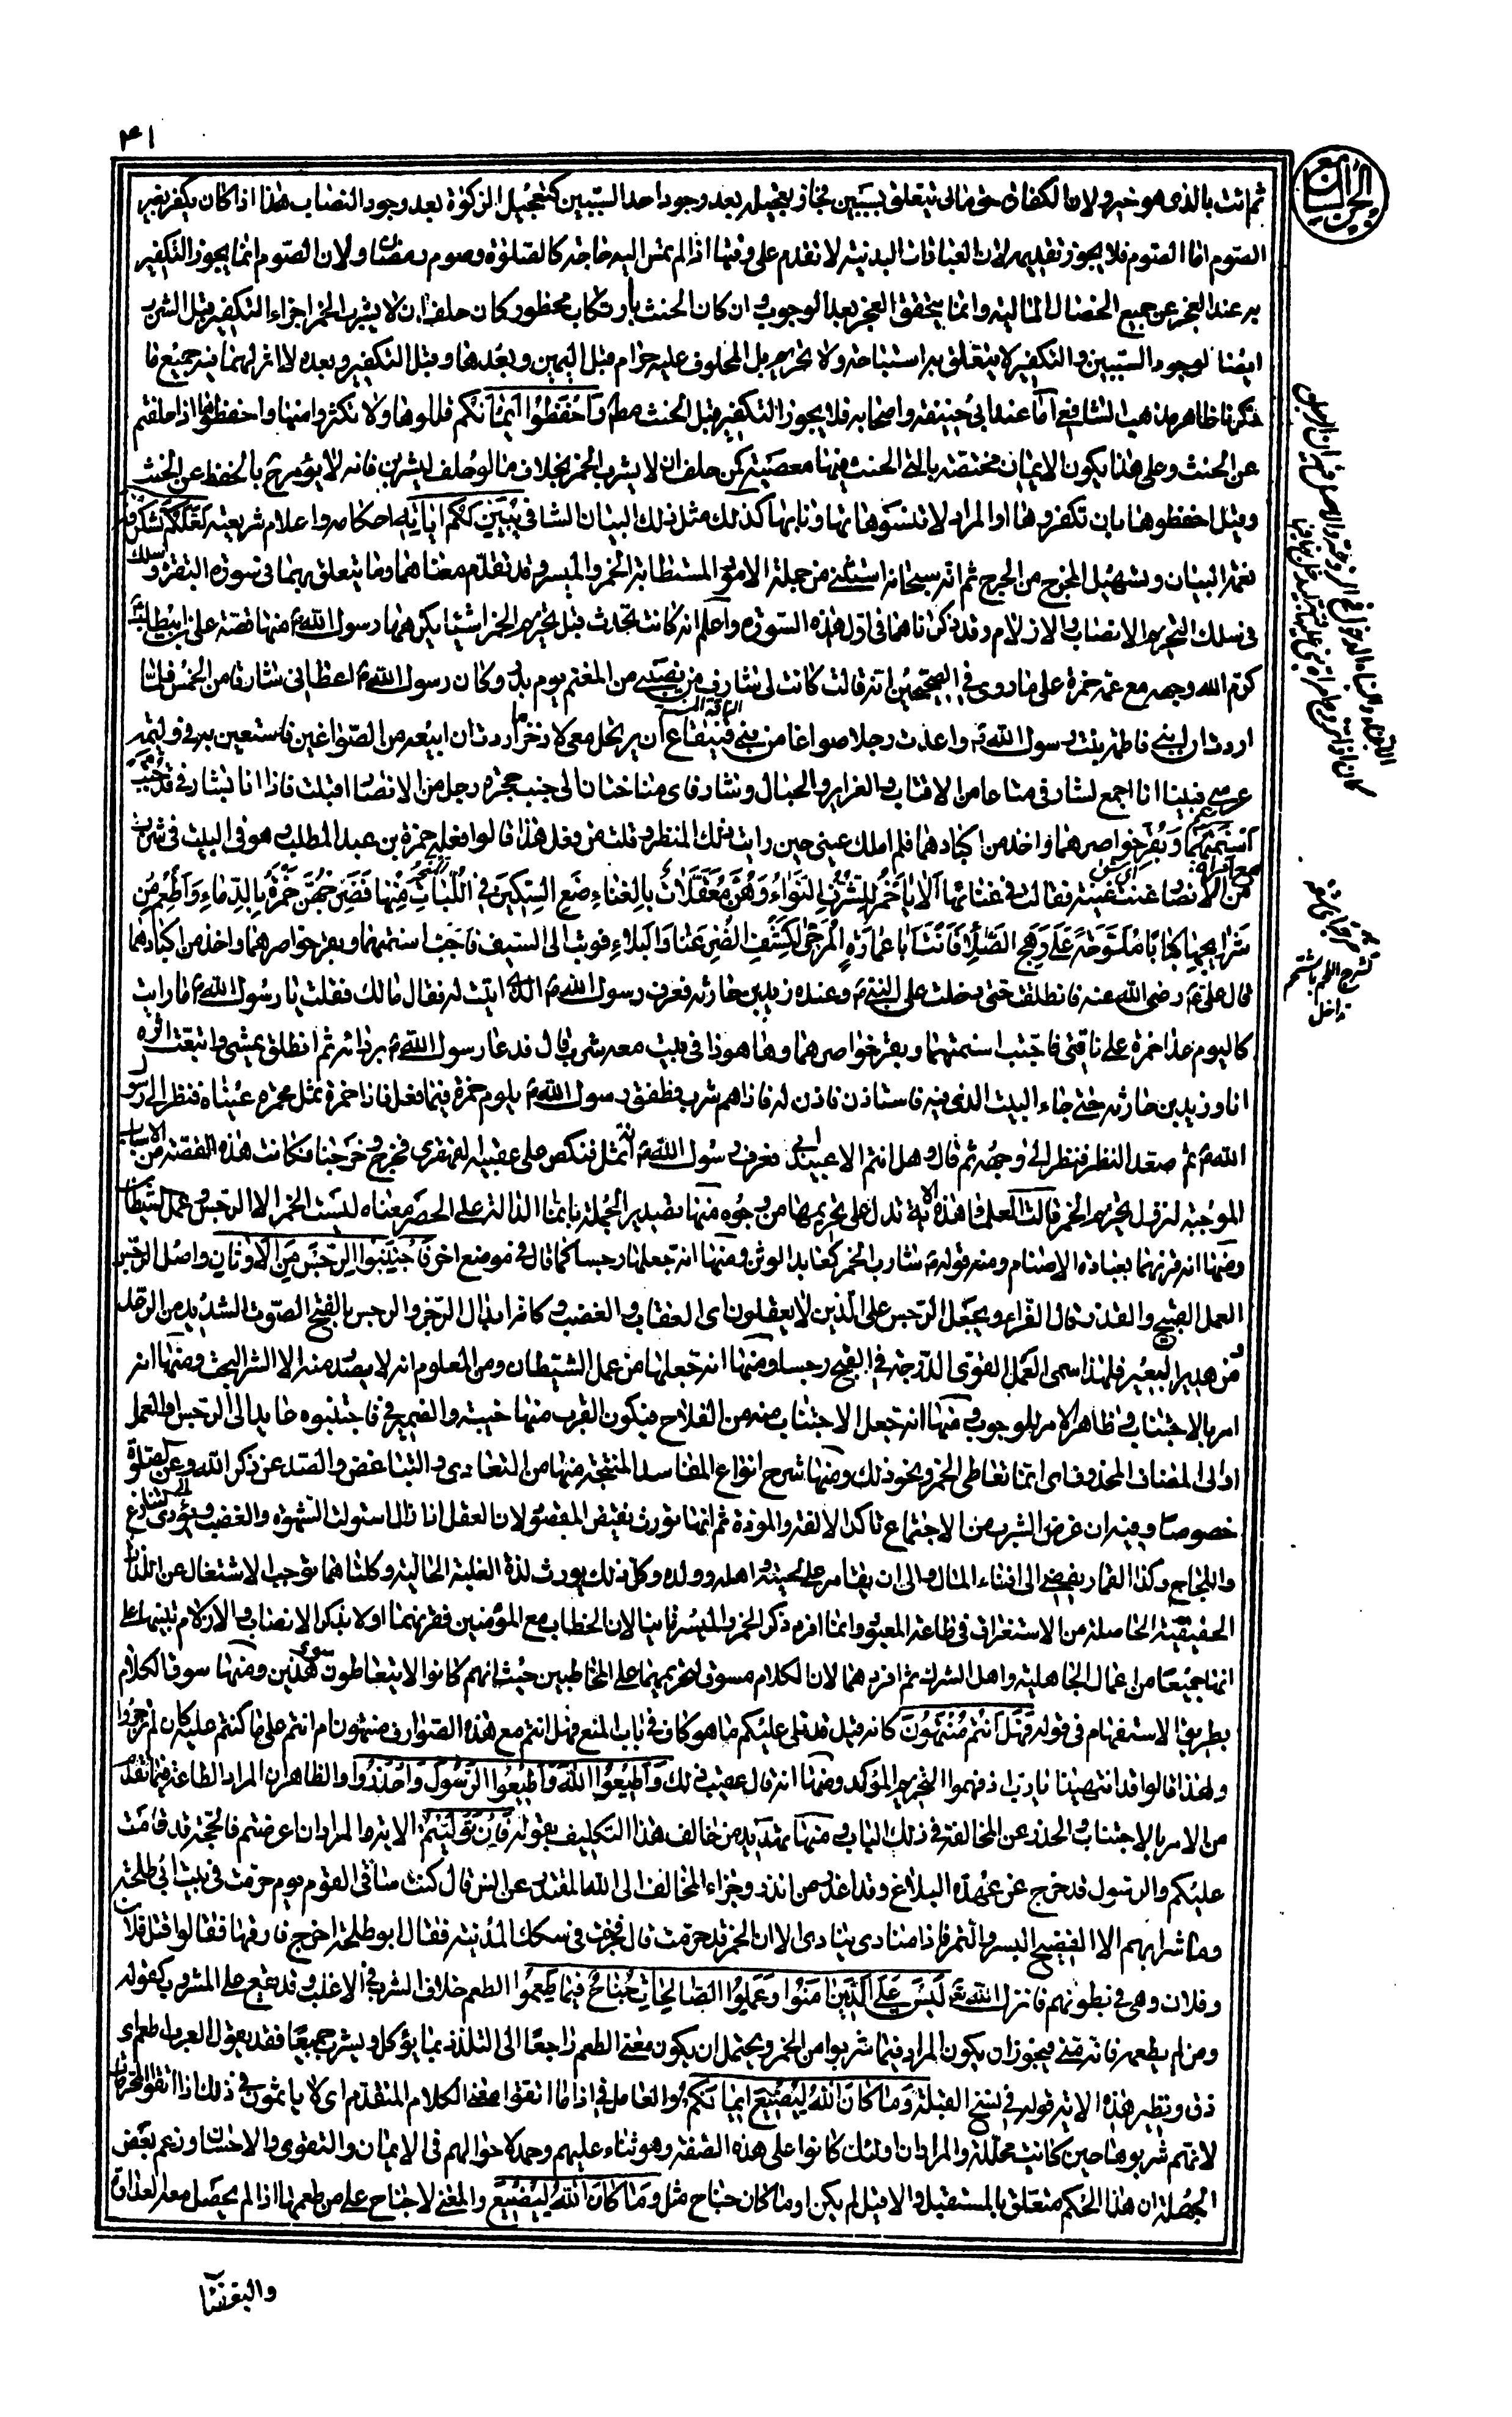 ٤١
الجزء السابع
ثم ائت بالذى هو خير ولان الكفارة حق مالى يتعلق بسببين فجاز تعجيله بعد وجود احد السببين كتعجيل الزكوة بعد وجود النصاب هذا اذا كان يكفر بغير
الصوم اما الصوم فلا يجوز تقديمه لان العبادات البدنية لا تقدم على وقتها اذا لم تمس اليه حاجة كالصلوة وصوم رمضان ولان الصوم انما يجوز التكفير
به عند العجز عن جميع الخصال المالية وانما يتحقق العجز بعد الوجوب وان كان الحنث بارتكاب محظور كان حلف ان لا يشرب الخمر اجزاه التكفير قبل الشرب
ايضا لوجود السببين والتكفير لا يتعلق به استباحة ولا تحريم بل المحلوف عليه حرام قبل اليمين وبعدها وقبل التكفير وبعده لا اثر لهما فيه جميع ما
ذكرنا ظاهر مذهب الشافعى اما عند ابى حنيفة واصحابه فلا يجوز التكفير قبل الحنث مطلقا وَاحْفَظُوا اَيْمَانَكُم قللوها ولا تكثروا منها واحفظوها اذا حلفتم
عن الحنث وعلى هذا يكون الايمان مختصة بالتى الحنث فيها معصية كمن حلف ان لا يشرب الخمر بخلاف ما لو حلف ليشربن فانه لا يؤمر ح بالحفظ عن الحنث
وقيل احفظوها بان تكفروها او المراد لا تنسوها تهاونا بها كذلك مثل ذلك البيان الشافى يُبَيِّنُ لَكُمْ اٰيَاتِهِ احكامه واعلام شريعته لَعَلَّكُمْ تَشْكُرُونَ
نعمة البيان وتسهيل المخرج من الحرج ثم انه سبحانه استثنى من جملة الامور المستطابة الخمر والميسر وقد تقدم معناهما وما يتعلق بهما فى سورة البقرة وسلك
فى سلك التحريم الانصاب والازلام وقد ذكرناهما فى اول هذه السورة واعلم انه كانت تحدث قبل تحريم الخمر اشياء يكرهها رسول الله ص منها قصة على بن ابيطالب
كرم الله وجهه مع عمه حمزة على ما روى فى الصحيحين انه قال كانت لى شارف من نصيبى من المغنم يوم بدر وكان رسول الله ص اعطانى شارفا من الخمس فلما
اردت ان ابتنى فاطمة بنت رسول الله ص واعدت رجلا صواغا من بنى قينقاع ان يرتحل معى لاذخر اردت ان ابيعه من الصواغين فاستعين به فى وليمة
عرسى فبينا انا اجمع لشارفى متاعا من الاقتاب والغراير والحبال وشارفاى مناختان الى جنب حجرة رجل من الانصار اقبلت فاذا انا بشارفى قد جبت
اسنمتهما وبقر خواصرهما واخذ من اكبادهما فلم املك عينى حين رايت ذلك المنظر وقلت من فعل هذا قالوا فعله حمزة بن عبد المطلب وهو فى البيت فى شرب
من الانصار غنت قينة فقالت فى غنائها اَلَا يَا حَمْزُ لِلشُّرُفِ النِّوَاءِ وَهُنَّ مُعَقَّلَاتٌ بِالْفِنَاءِ ضَعِ السِّكِّينَ فِى اللَّبَّاتِ مِنْهَا فَضَرِّجْهُنَّ حَمْزَةُ بِالدِّمَاءِ وَاَطْعِمْ مِنْ
قال على رضى الله عنه فانطلقت حتى دخلت على النبى ص وعنده زيد بن حارثة فعرف رسول الله ص الذى اتيت له فقال مالك فقلت يا رسول الله ص ما رايت
كاليوم عدا حمزة على ناقتى فاجتب اسنمتهما وبقر خواصرهما وها هو ذا فى بيت معه شرب قال فدعا رسول الله ص بردائه ثم انطلق يمشى واتبعت اثره
انا وزيد بن حارثة حتى جاء البيت الذى فيه فاستاذن فاذن له فاذا هم شرب فطفق رسول الله ص يلوم حمزة فيما فعل فاذا حمزة ثمل محمرة عيناه فنظر الى رسول
الله ص ثم صعد النظر فنظر الى وجهه ثم قال وهل انتم الا عبيد ابى فعرف رسول الله ص انه ثمل فنكص على عقبيه القهقرى فخرج وخرجنا فكانت هذه القصة من الاسباب
الموجبة لنزول تحريم الخمر قالت العلماء هذه الاية تدل على تحريمها من وجوه منها تصدير الجملة بانما الدالة على الحصر معناه ليست الخمر الا الرجس وعمل الشيطان
ومنها انه قرنهما بعبادة الاصنام ومنه قوله ص شارب الخمر كعابد الوثن ومنها انه جعلها رجسا كما قال فى موضع اخر فَاجْتَنِبُوا الرِّجْسَ مِنَ الْاَوْثَانِ واصل الرجس
العمل القبيح والقذر قال الفراء ويجعل الرجس على الذين لا يعقلون اى العقاب والغضب وكانه ابدال الرجز والرجس بالفتح الصوت الشديد من الرعد
ومن هدير البعير فلهذا سمى العمل القوى الدرجة فى القبح رجسا ومنها انه جعلها من عمل الشيطان ومن المعلوم انه لا يصدر منه الا الشر البحت ومنها انه
امر بالاجتناب وظاهر الامر للوجوب ومنها انه جعل الاجتناب منه من الفلاح فيكون القرب منها خيبة والضمير فى فاجتنبوه عايد الى الرجس او العمل
او الى المضاف المحذوف اى انما تعاطى الخمر ونحو ذلك ومنها شرح انواع المفاسد المنتجة منها من التعادى والتباغض والصد عن ذكر الله وعن الصلوة
خصوصا وفيه ان غرض الشرب من الاجتماع تاكد الالفة والمودة ثم انها تورث نقيض المقصود لان العقل اذا زال استولت الشهوة والغضب ويؤدى الى التنازع
واللجاج وكذا القمار يفضى الى افناء المال والى ان يقامر على لحيته واهله وولده وكل ذلك يورث لذة الغلبة الحالية وكلتاهما توجب الاشتغال عن اللذات
الحقيقية الحاصلة من الاستغراق فى طاعة المعبود وانما افرد ذكر الخمر والميسر ثانيا لان الخطاب مع المؤمنين فقرنهما اولا بذكر الانصاب والازلام تنبيها على
انها جميعا من اعمال الجاهلية واهل الشرك ثم افردهما لان الكلام مسوق لتحريمهما على المخاطبين حيث انهم كانوا لا يتعاطون سوى هذين ومنها سوق الكلام
بطريق الاستفهام فى قوله فَهَلْ اَنْتُمْ مُنْتَهُونَ كانه قيل قد تلى عليكم ما هو كاف فى باب المنع فهل انتم مع هذه الصوارف منتهون ام انتم على ما كنتم عليه كان لم تزجروا
ولهذا قالوا قد انتهينا يا رب اذ فهموا التحريم المؤكد ومنها انه قال عقيب ذلك وَاَطِيعُوا اللّٰهَ وَاَطِيعُوا الرَّسُولَ وَاحْذَرُوا والظاهر ان المراد الطاعة فيما تقدم
من الامر بالاجتناب والحذر عن المخالفة فى ذلك الباب ومنها تهديد من خالف هذا التكليف بقوله فَاِنْ تَوَلَّيْتُمْ الاية والمراد ان اعرضتم فالحجة قد قامت
عليكم والرسول قد خرج عن عهدة البلاغ وقد اعذر من انذر وجزاء المخالف الى الله المقتدر عن انس قال كنت ساقى القوم يوم حرمت فى بيت ابى طلحة
وما شرابهم الا الفضيخ البسر والتمر فاذا منادى ينادى الا ان الخمر قد حرمت قال فجرت فى سكك المدينة فقال ابو طلحة اخرج فارقها فقالوا قتل فلان
وفلان وهى فى بطونهم فانزل الله تع لَيْسَ عَلَى الَّذِينَ اٰمَنُوا وَعَمِلُوا الصَّالِحَاتِ جُنَاحٌ فِيمَا طَعِمُوا الطعم خلاف الشرب فى الاغلب وقد يقع على المشروب كقوله
ومن لم يطعمه فانه منى فيجوز ان يكون المراد فيما شربوا من الخمر ويحتمل ان يكون معنى الطعم راجعا الى التلذذ بما يؤكل ويشرب جميعا فقد يقول العرب طعم اى
ذق ونظير هذه الاية قوله فى نسخ القبلة وَمَا كَانَ اللّٰهُ لِيُضِيعَ اِيمَانَكُمْ والعامل فى اذا ما اتقوا معنى الكلام المتقدم اى لا ياثمون فى ذلك اذا اتقوا المحرمات
لانهم شربوها حين كانت محللة والمراد ان اولئك كانوا على هذه الصفة وهو ثناء عليهم وحمد لاحوالهم فى الايمان والتقوى والاحسان وزعم بعض
الجهلة ان هذا الحكم متعلق بالمستقبل والا قيل لم يكن او ما كان جناح مثل وَمَا كَانَ اللّٰهُ لِيُضِيعَ والمعنى لا جناح على من طعمها اذا لم يحصل معه العداوة
والبغضاء